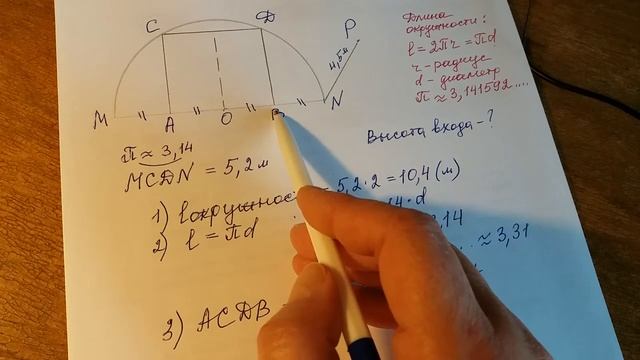 C D P
4,5м
M A O B N
Длина
окружности:
l = 2πr = πd
r - радиус
d - диаметр
π ≈ 3,141592....
Высота входа - ?
π ≈ 3,14
MCDN = 5,2 м
1) l = 5,2 · 2 = 10,4 (м)
2) l = πd 14 · d
,14
... ≈ 3,31
3) ACDB =